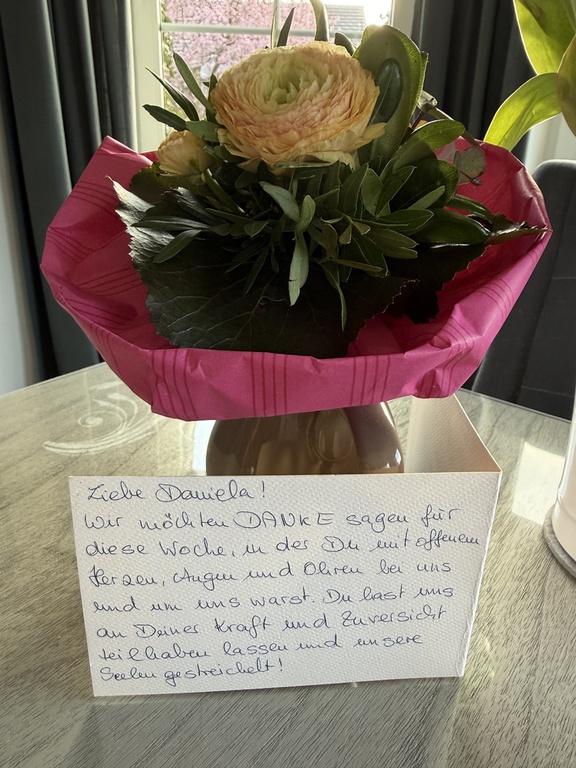 Liebe Daniela!
Wir möchten DANKE sagen für
diese Woche, in der Du mit offenem
Herzen, Augen und Ohren bei uns
und um uns warst. Du hast uns
an Deiner Kraft und Zuversicht
teilhaben lassen und unsere
Seelen gestreichelt!